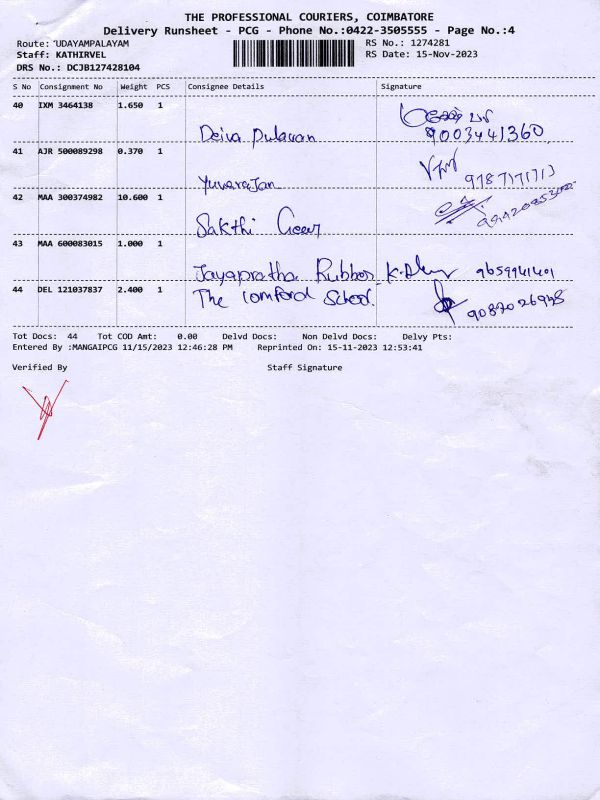 THE PROFESSIONAL COURIERS, COIMBATORE
Delivery Runsheet - PCG - Phone No.:0422-3505555 - Page No.:4
Route: UDAYAMPALAYAM
RS No.: 1274281
Staff: KATHIRVEL
RS Date: 15-Nov-2023
DRS No.: DCJB127428104
S No Consignment No Weight PCS Consignee Details Signature
40 IXM 3464138 1.650 1
Deiva Pulavan 9003441360
41 AJR 500089298 0.370 1
Yuvarajan 9787171713
42 MAA 300374982 10.600 1
Sakthi Gear
43 MAA 600083015 1.000 1
Jayapratha Rubber 9659941401
44 DEL 121037837 2.400 1
The School 9087026938
Tot Docs: 44 Tot COD Amt: 0.00 Delvd Docs: Non Delvd Docs: Delvy Pts:
Entered By :MANGAIPCG 11/15/2023 12:46:28 PM Reprinted On: 15-11-2023 12:53:41
Verified By Staff Signature